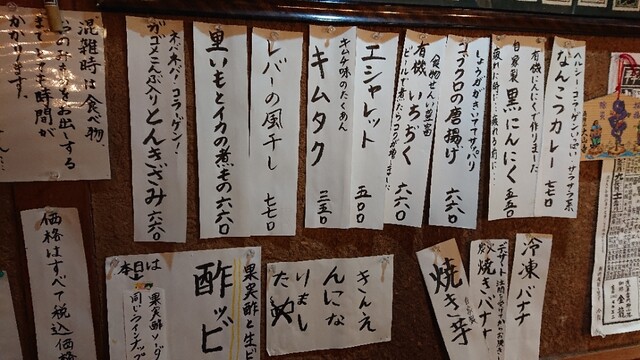 ヘルシーコラーゲンいっぱい サラサラ系
なんこつカレー 七七〇
有機にんにくで作りました
自家製 黒にんにく 五五〇
疲れた時に…
しょうががきいててサッパリ
コブクロの唐揚げ 六六〇
食物せんい豊富
有機 いちぢく 六六〇
エシャレット 五五〇
キムチ味のたくあん
キムタク 三五〇
レバーの風干し 七七〇
里いもとイカの煮もの 六六〇
ネバネバ!コラーゲン!
ガゴメこんぶ入り とんきざみ 六六〇
混雑時は食べ物、
のみ物をお出しする
までに時間が
かかります。
冷凍バナナ
デザート
炭火 焼きバナナ
焼き芋
きんえ
んにな
りまし
た
果実酢と生ビ
酢ッビ
本日は
果実酢ソーダ
同じラインナップ
価格はすべて税込価格